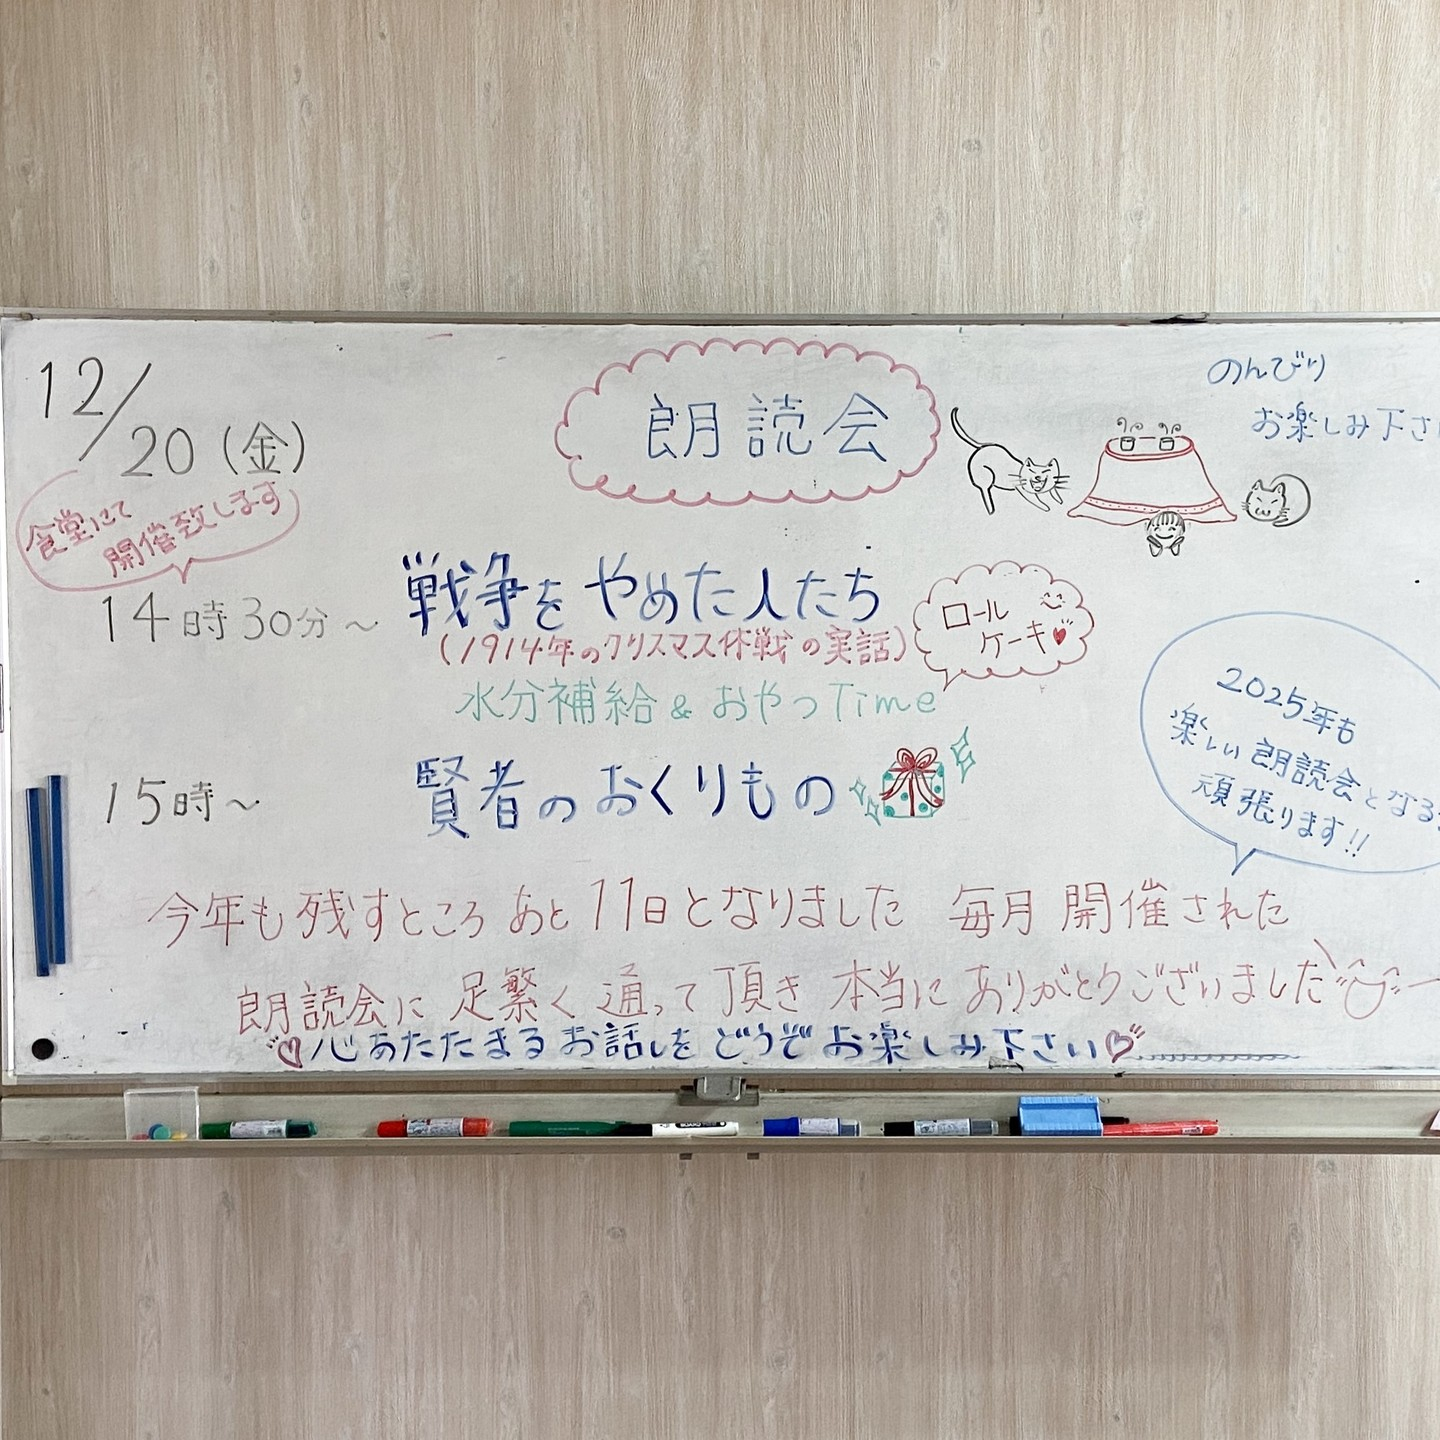 12/20(金)
朗読会
のんびり
お楽しみ下さ
食堂にて
開催致します
14時30分～ 戦争をやめた人たち
(1914年のクリスマス休戦の実話)
ロール
ケーキ
水分補給&おやつTime
15時～ 賢者のおくりもの
2025年も
楽しい朗読会となる
頑張ります!!
今年も残すところあと11日となりました 毎月開催された
朗読会に足繁く通って頂き本当にありがとうございました
心あたたまるお話しをどうぞお楽しみ下さい